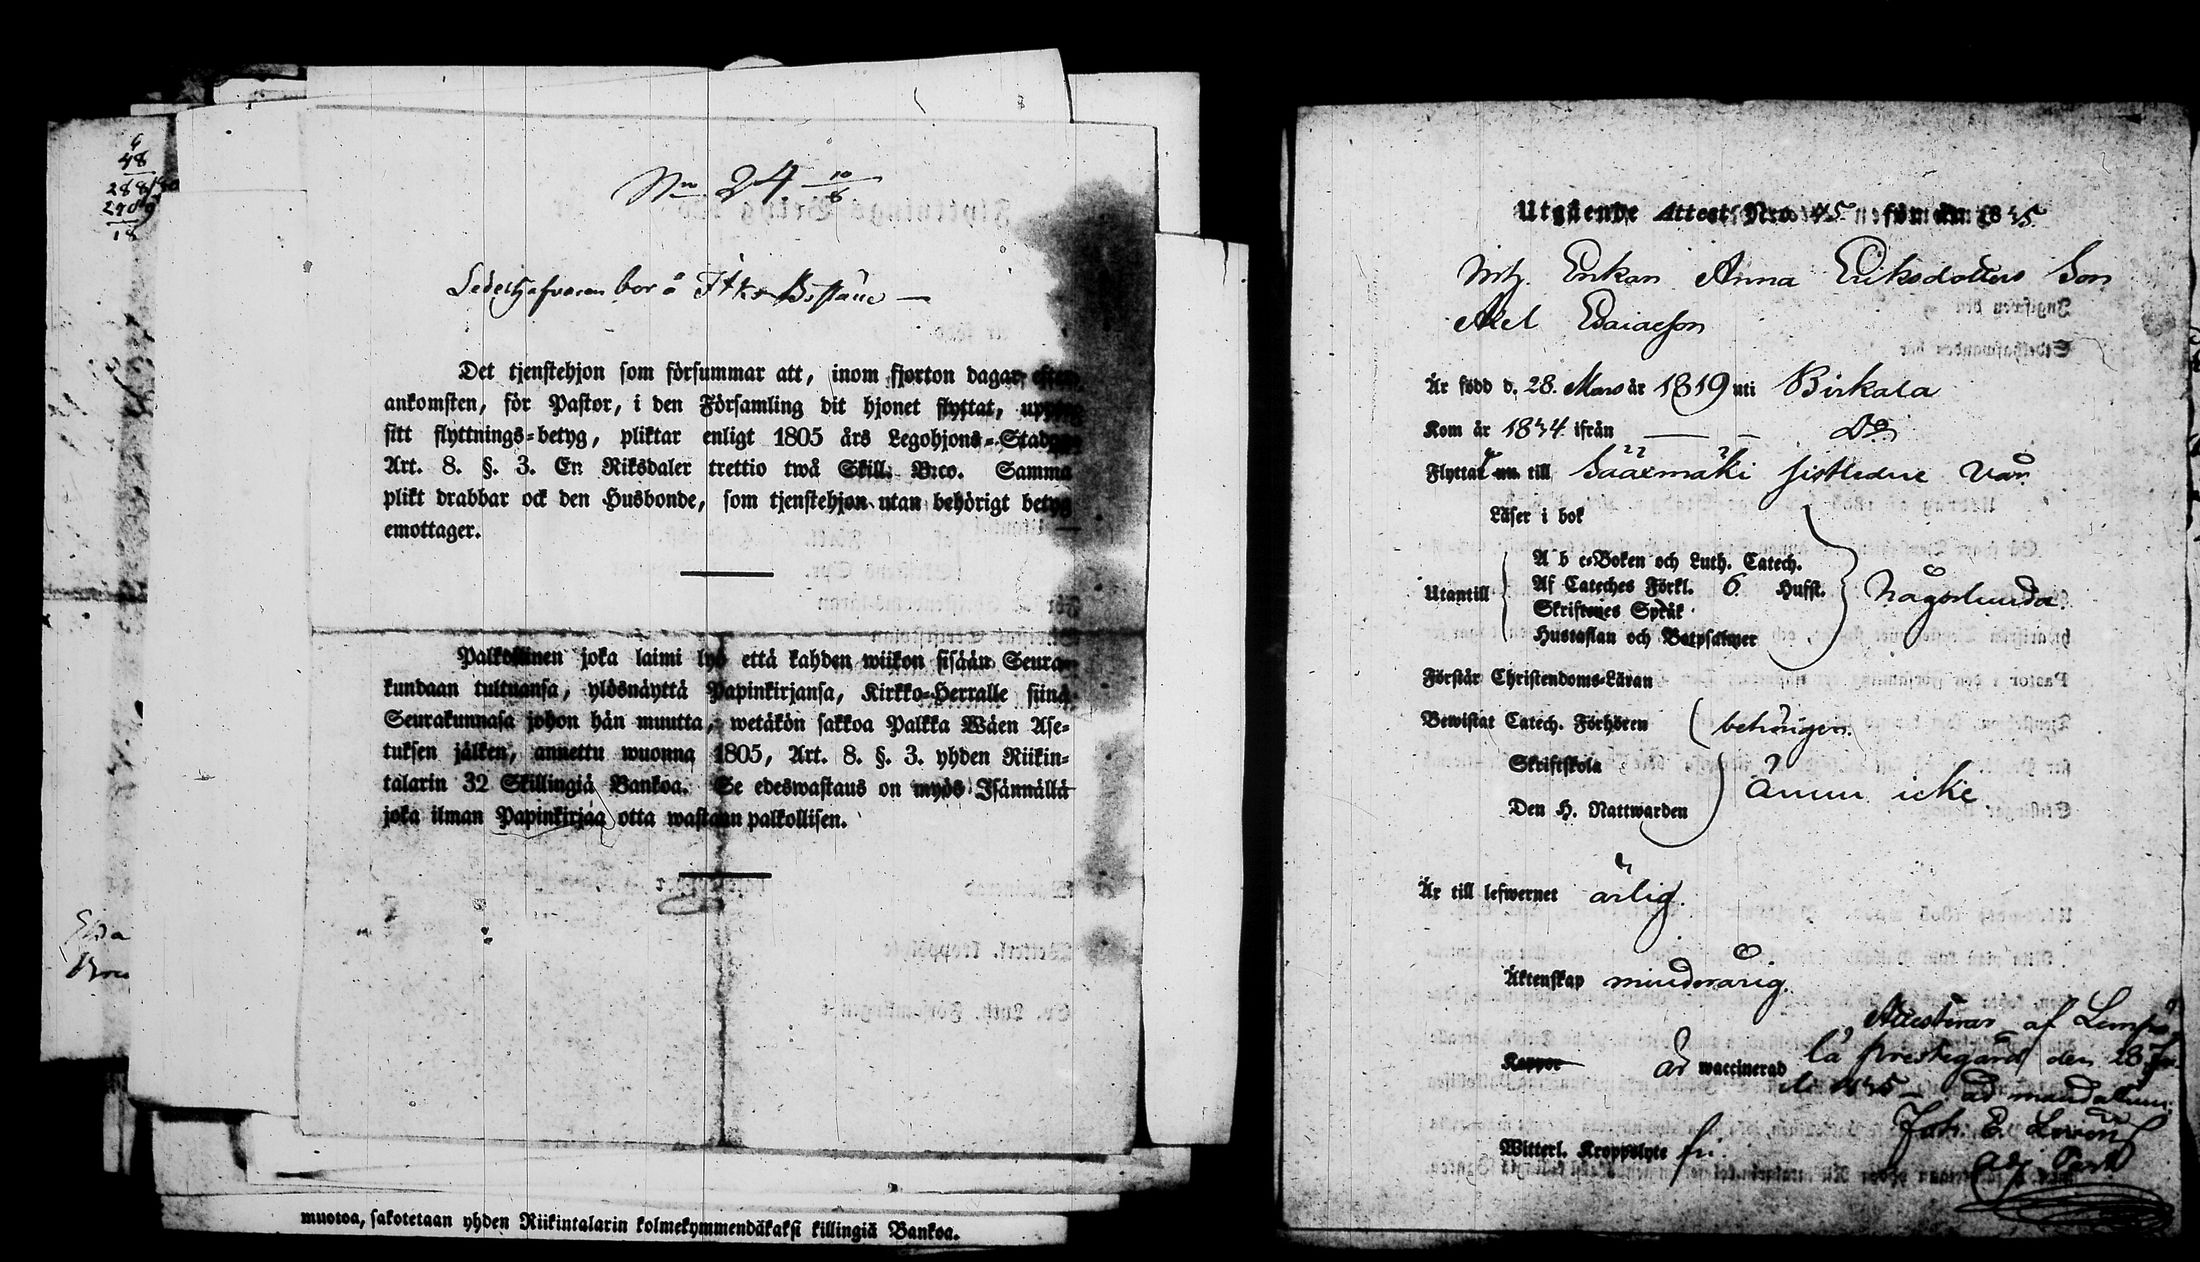 6
48
288
18
No 24 10/8
bor å
Det tjenstehjon som försummar att, inom fjorton dagar efter
ankomsten, för Pastor, i den Församling dit hjonet flyttat,
sitt flyttnings-betyg, pliktar enligt 1805 års Legohjons-Stadgas
Art. 8. §. 3. En Riksdaler trettio twå Skill. B:co. Samma
plikt drabbar ock den Husbonde, som tjenstehjon utan behörigt betyg
emottager.
Palkollinen joka laimi lyö että kahden wiikon sisään Seura-
kundaan tultuansa, ylösnäyttä Papinkirjansa, Kirkko-Herralle siinä
Seurakunnasa johon hän muutta, wetäkön sakkoa Palkka Wäen Ase-
tuksen jälken, annettu wuonna 1805, Art. 8. §. 3. yhden Riikin-
talarin 32 Skillingiä Bankoa. Se edeswastaus on myös Isännällä
joka ilman Papinkirjaa otta wastaan palkollisen.
muotoa, sakotetaan yhden Riikintalarin kolmekymmendäkaksi killingiä Bankoa.
Utgående Attest Nro 45
Enkan Anna Eriksdotters Son
Axel
Är född d. 28 Mars år 1819 uti Birkala
Kom år 1834 ifrån — — Do
Flyttat nu till Sääxmäki sistledne vår
Läser i bok
Utantill
A b c-Boken och Luth. Catech.
Af Cateches Förkl. 6 Hufst.
Skriftenes Språk
Hustaflan och Botpsalmer
någorlunda
Förstår Christendoms-Läran
Bewistat Catech. Förhören
behörigen.
Skriftskola
Den H. Nattwarden
ännu icke
Är till lefwernet ärlig.
Äktenskap minderårig.
Koppor är waccinerad
Attesterar af Lempä-
lä prestegård den 28 Ju-
li 1835 — ad mandatum:
Joh. E.
adj. Past.
Witterl. Kroppslyte fri.